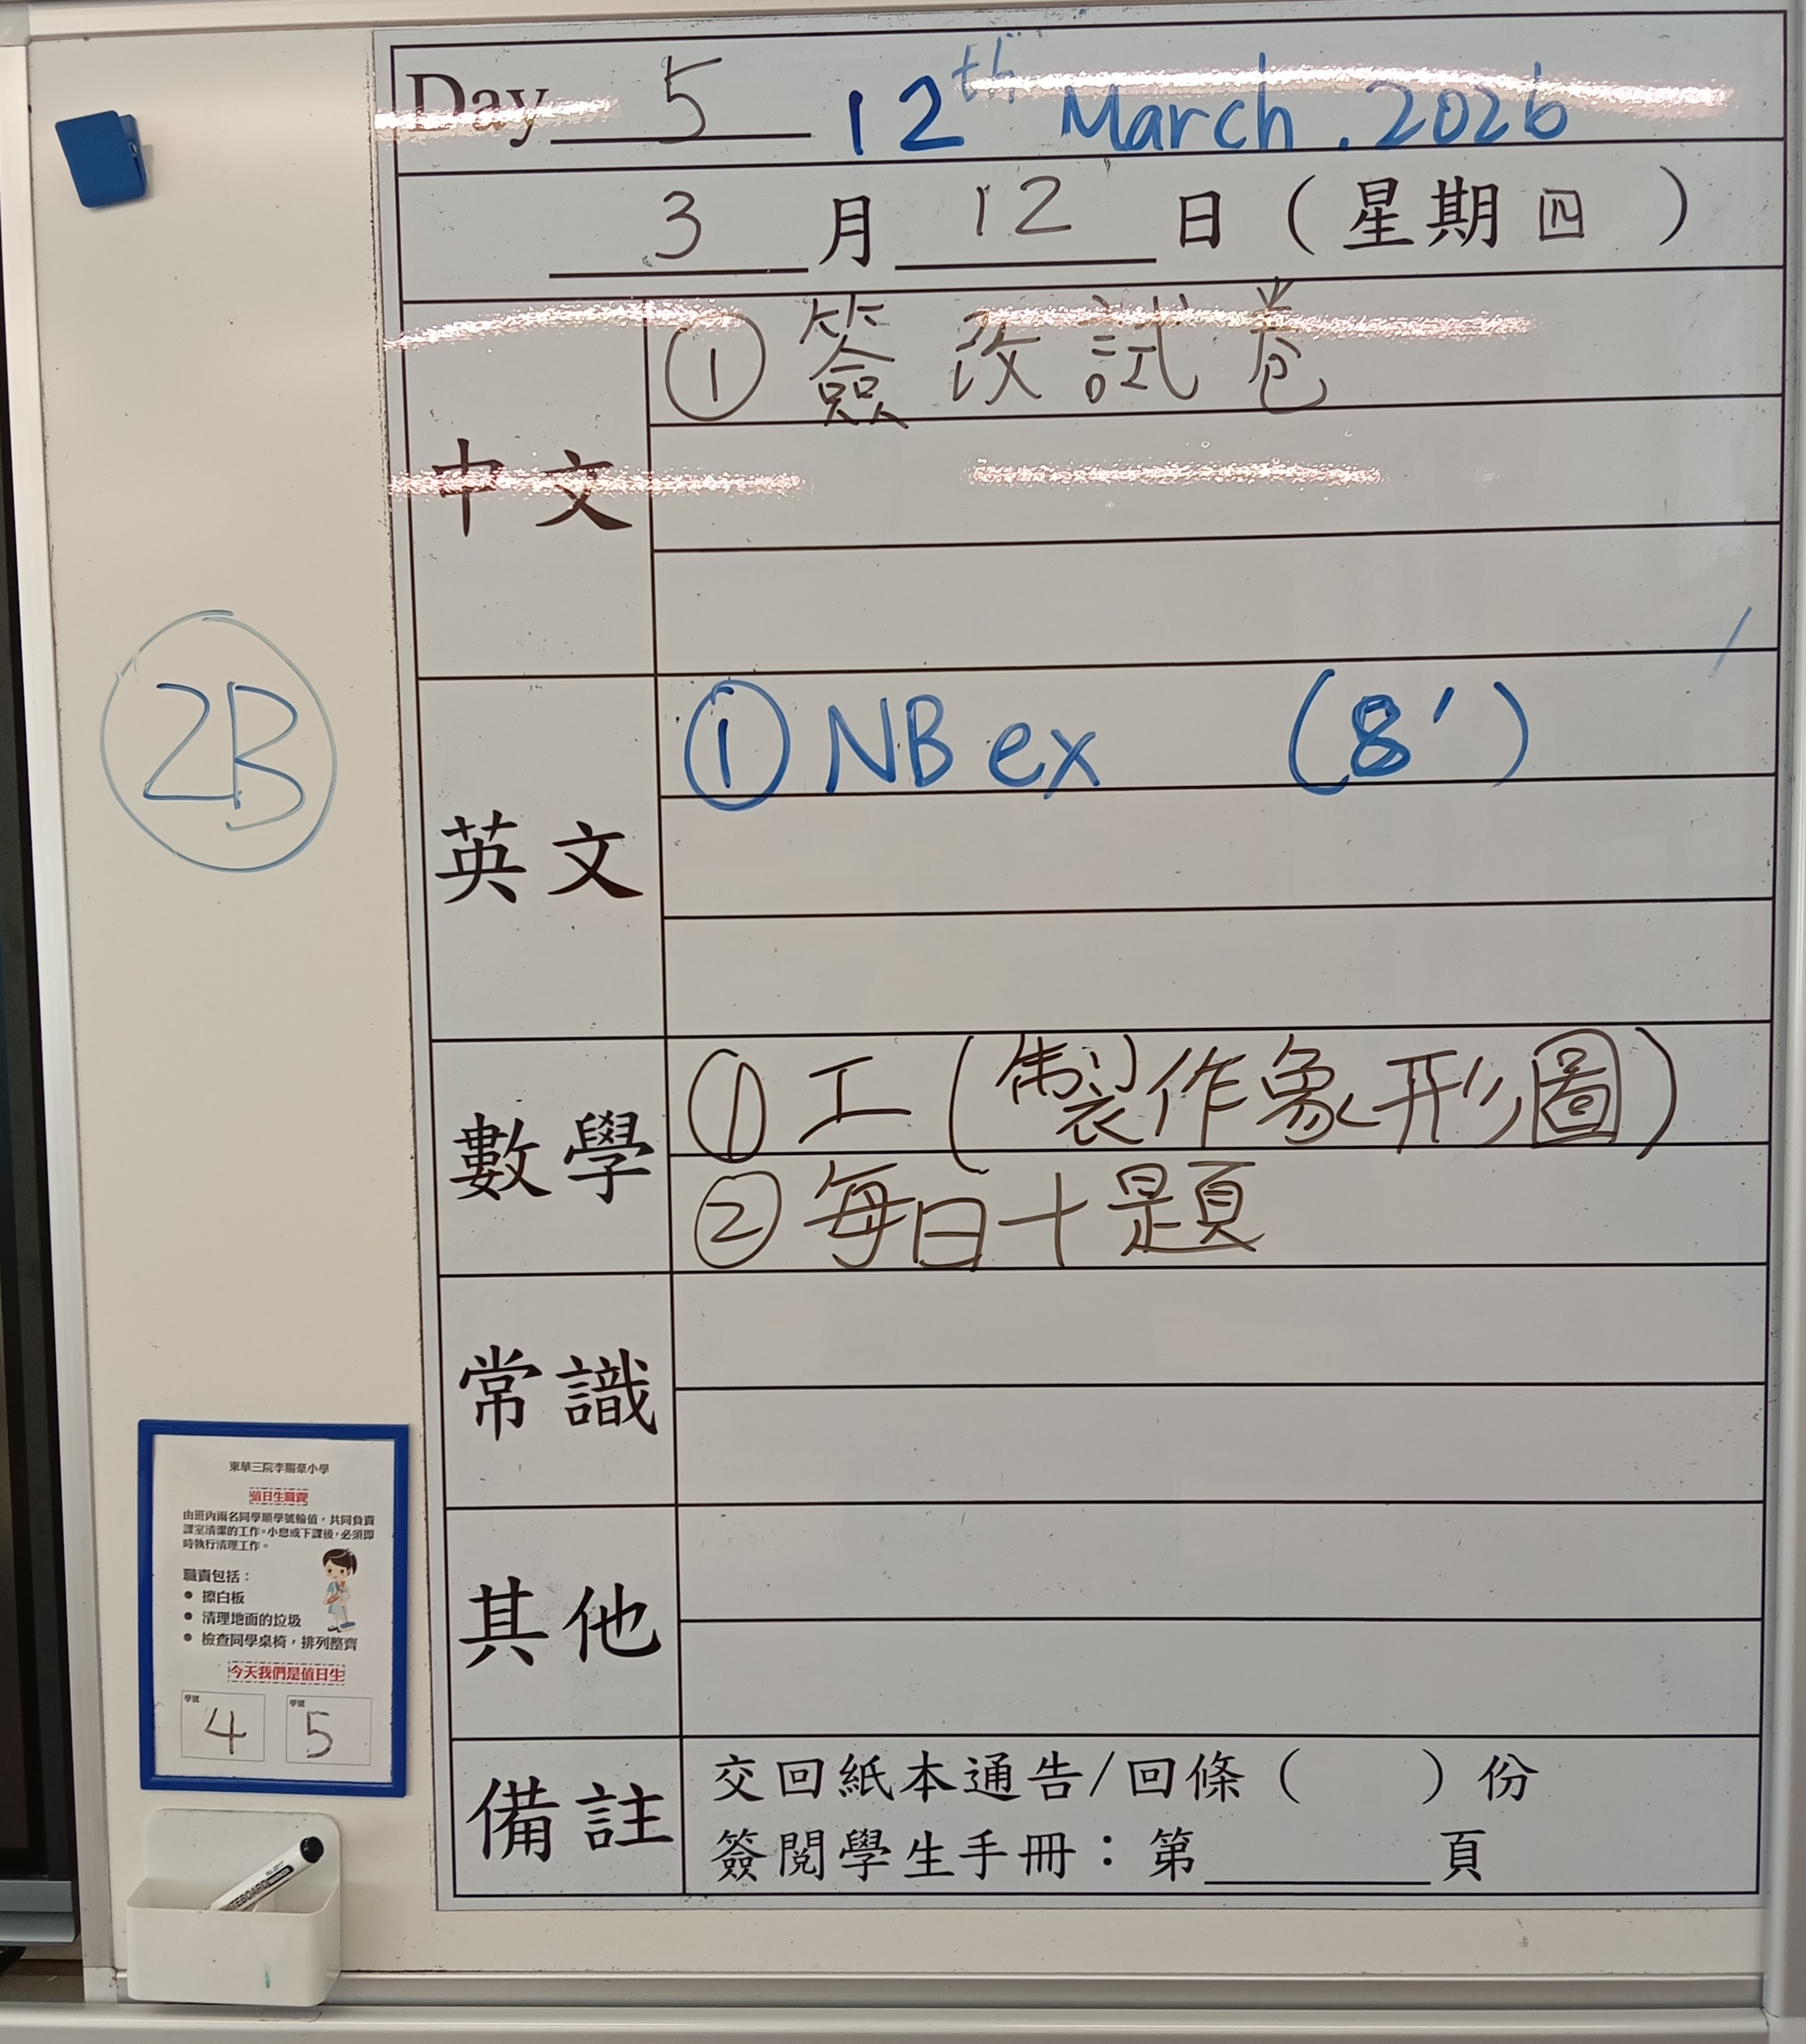 Day 5 12th March. 2026
3月12日（星期四）
中文
① 簽改試卷
2B
英文
① NB ex (8')
數學
① 工(製作象形圖)
② 每日十題
常識
其他
備註
交回紙本通告/回條（ ）份
簽閱學生手冊：第______頁
東華三院李賜豪小學
值日生職責
由班內兩名同學順學號輪值，共同負責
課室清潔的工作。小息或下課後，必須即
時執行清理工作。
職責包括：
● 擦白板
● 清理地面的垃圾
● 檢查同學桌椅，排列整齊
今天我們是值日生
學號 學號
4 5